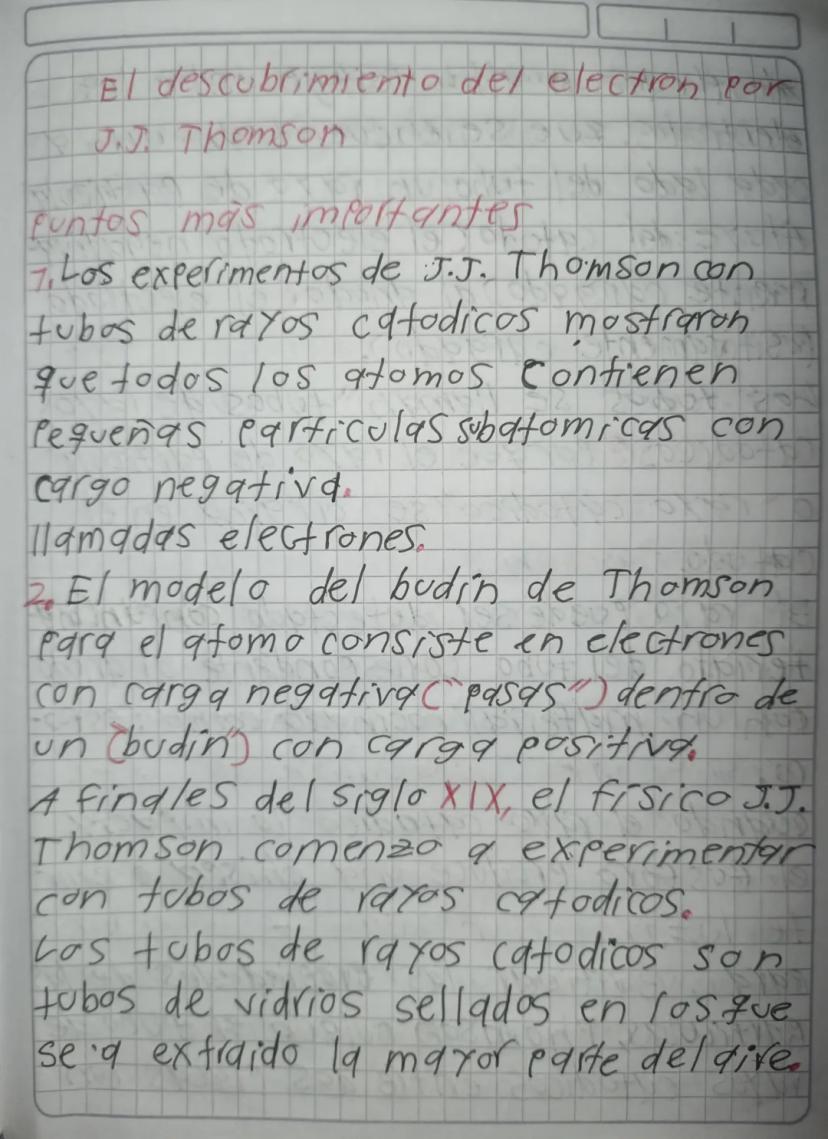 El descubrimiento del electron por
J.J. Thomson
puntos más importantes
1. Los experimentos de J.J. Thomson con
tubos de rayos catodicos mostraron
que todos los atomos contienen
pequeñas particulas subatomicas con
cargo negativa.
llamadas electrones.
2. El modelo del budín de Thomson
para el atomo consiste en electrones
con carga negativa ("pasas") dentro de
un (budin") con carga positiva.
A finales del siglo XIX, el físico J.J.
Thomson comenzo a experimentar
con tubos de rayos catodicos.
Los tubos de rayos catodicos son
tubos de vidrios sellados en los que
se a extraido la mayor parte del aire.